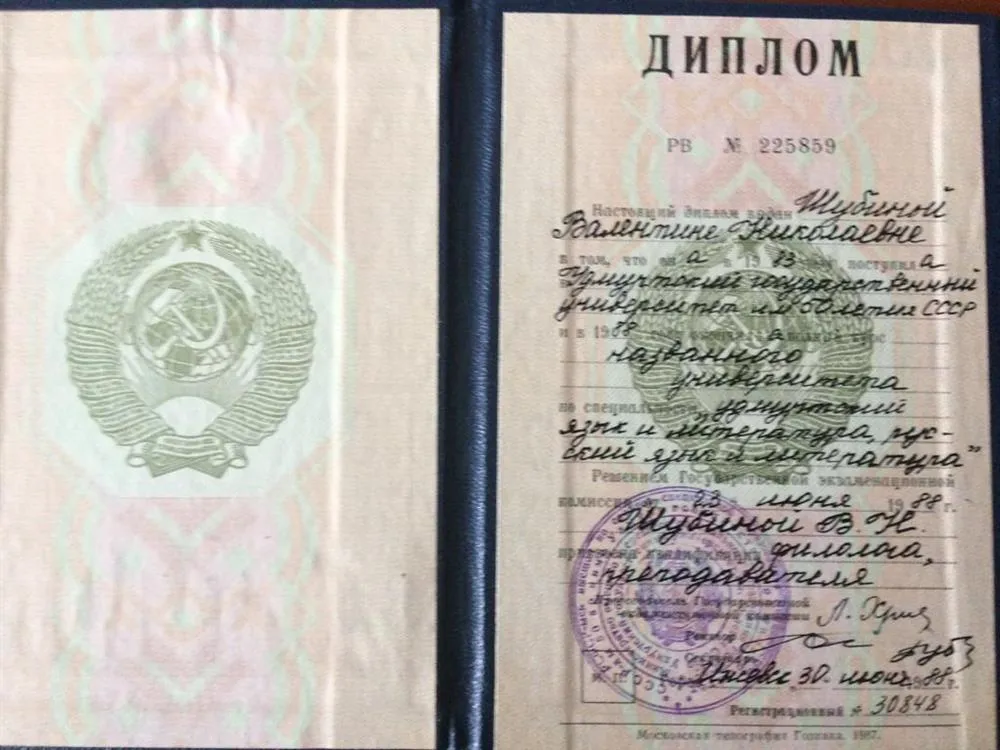 ДИПЛОМ
РВ № 225859
Настоящий диплом выдан Шубиной
Валентине Николаевне
в том, что он а в 1983 году поступил а
в Удмуртский государственный
университет им 50-летия СССР
и в 1988 году окончил а полный курс
названного
университета
по специальности „удмуртский
язык и литература, рус-
ский язык и литература"
Решением Государственной экзаменационной
комиссии от 23 июня 1988 г.
Шубиной В. Н.
присвоена квалификация филолога,
преподавателя
Председатель Государственной
экзаменационной комиссии
Ректор
Секретарь
М. П. Город Ижевск 30 июня 1988 г.
Регистрационный № 30848
Московская типография Гознака. 1987.